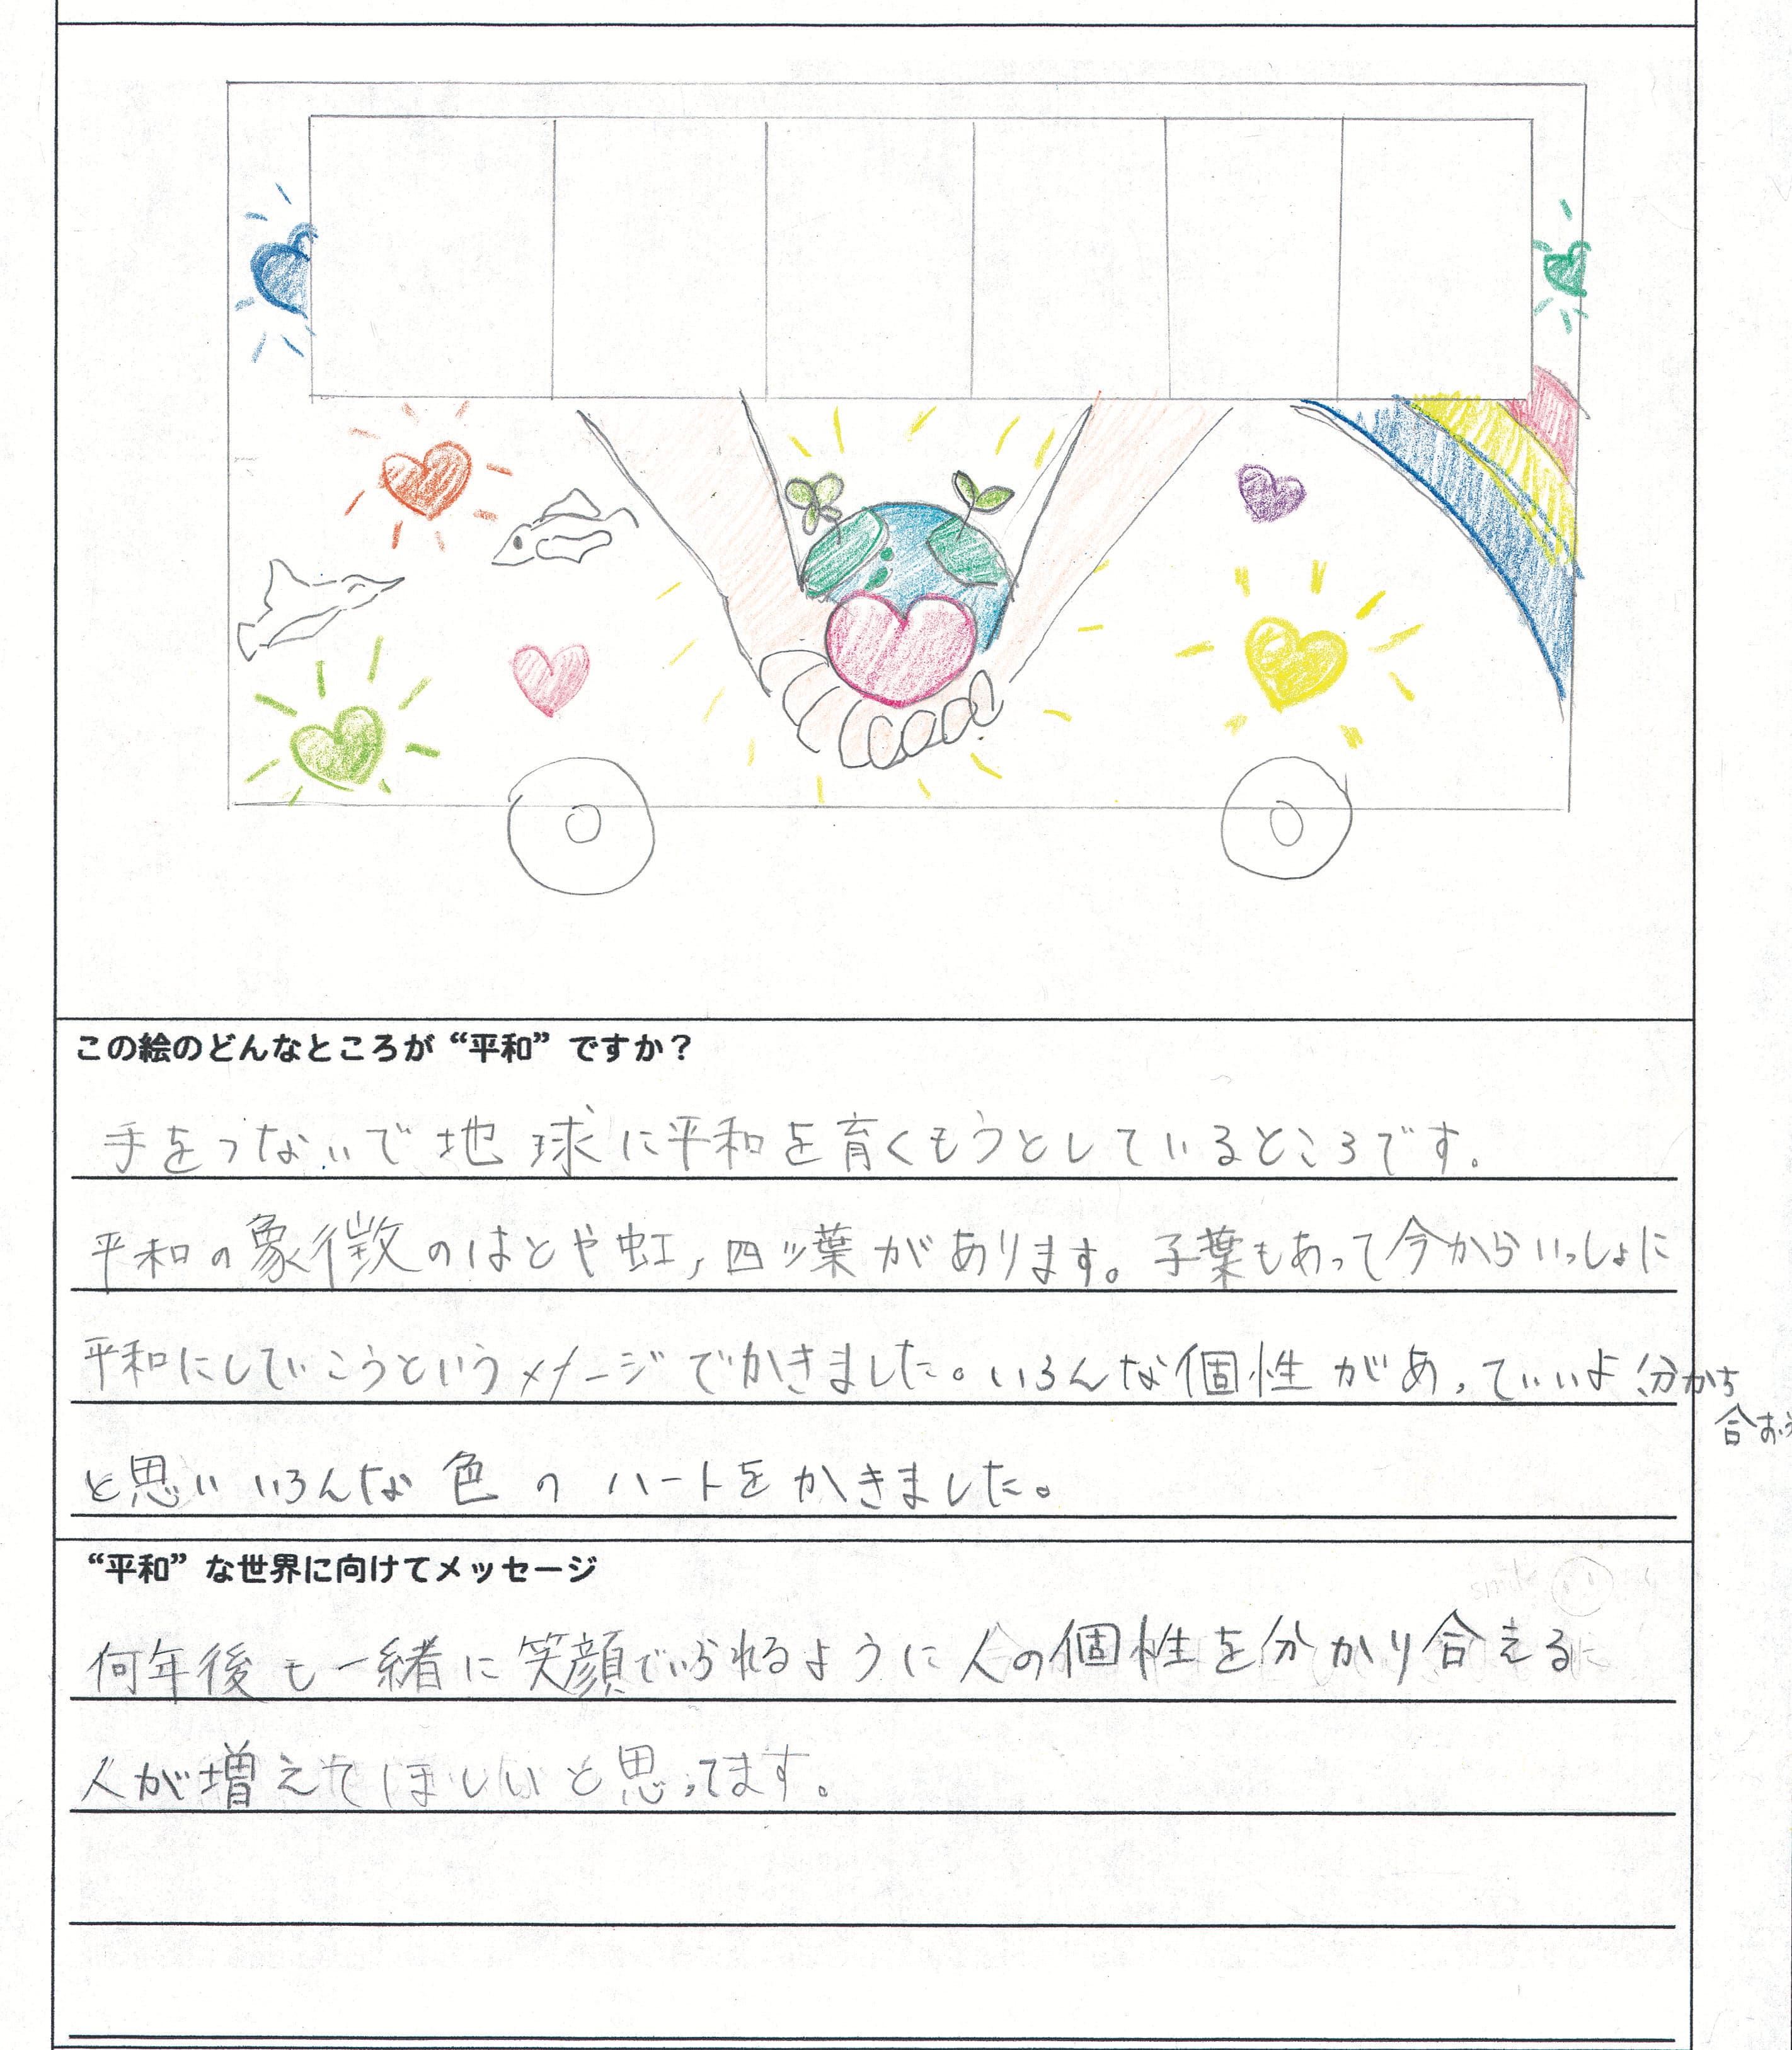 この絵のどんなところが“平和”ですか？
手をつないで地球に平和を育くもうとしているところです。
平和の象徴のはとや虹,四ッ葉があります。子葉もあって今からいっしょに
平和にしていこうというイメージでかきました。いろんな個性があっていいよ分かち
合おう
と思いいろんな色のハートをかきました。
“平和”な世界に向けてメッセージ
何年後も一緒に笑顔でいられるように人の個性を分かり合える
人が増えてほしいと思ってます。